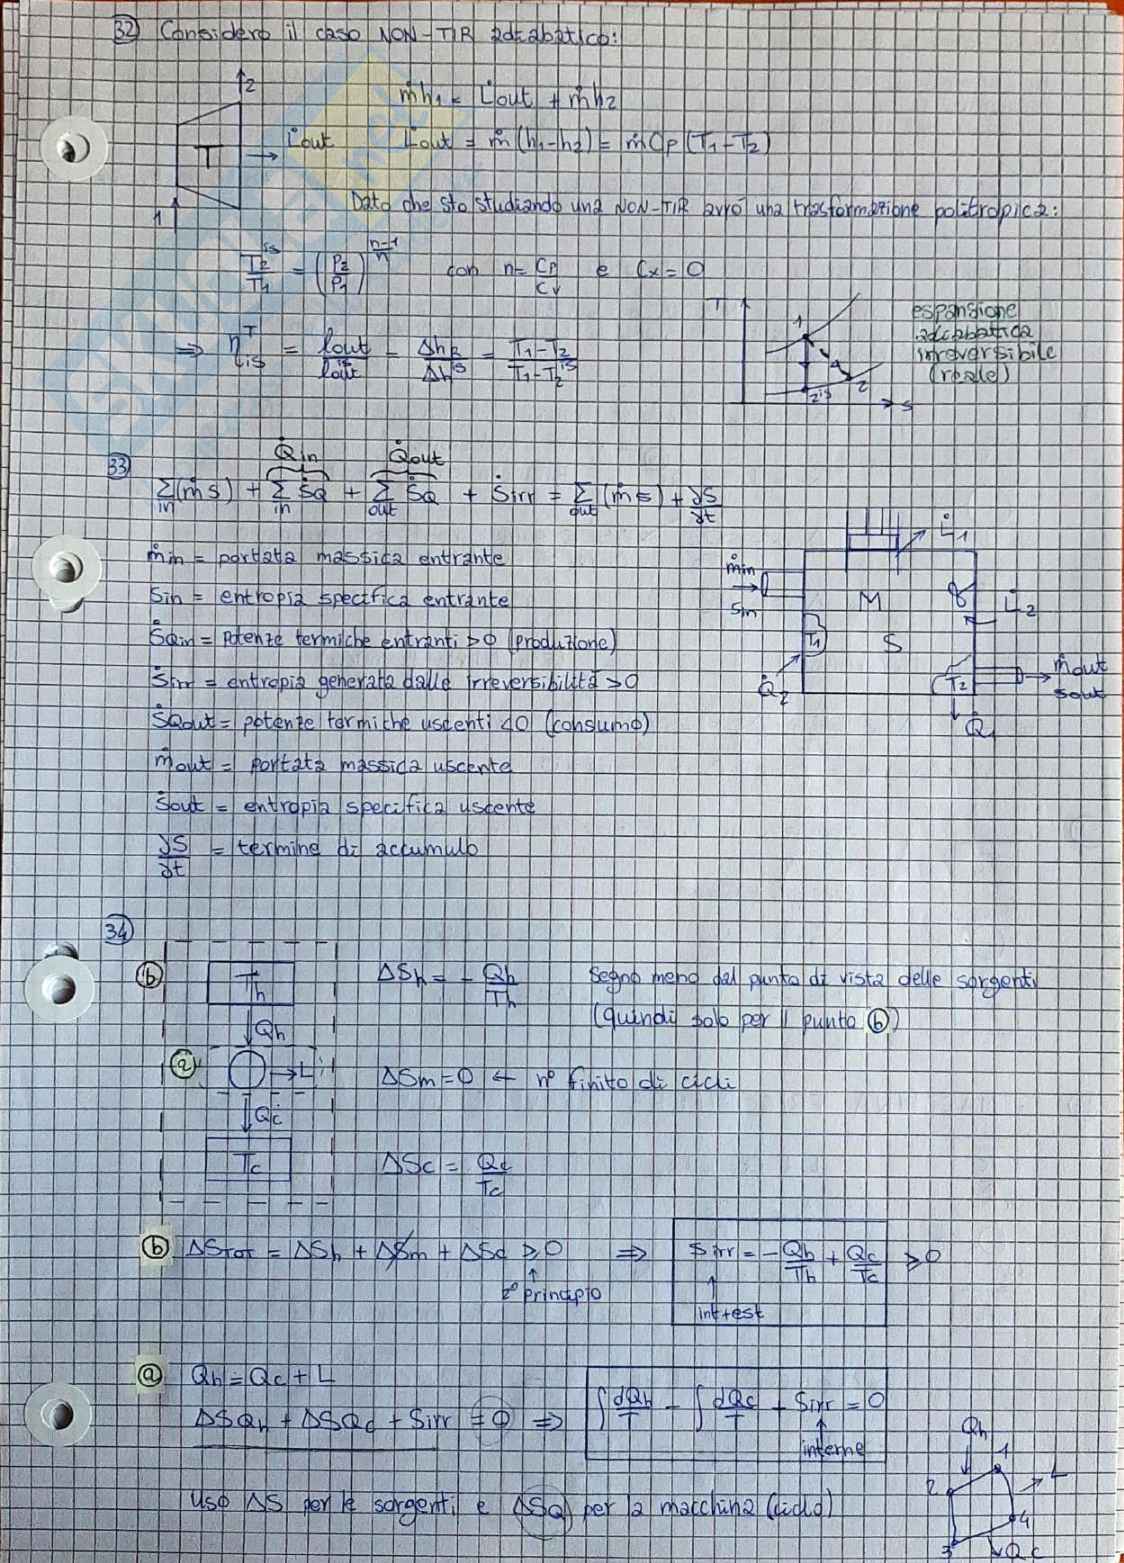 32) Considero il caso NON-TIR adiabatico:
2
ṁh₁ = L̇out + ṁh₂
T L̇out L̇out = ṁ(h₁-h₂) = ṁCp(T₁-T₂)
1
Dato che sto studiando una NON-TIR avrò una trasformazione politropica:
T₂^is/T₁ = (P₂/P₁)^((n-1)/n) con n = Cp/Cv e Cx = 0
⇒ η_is^T = lout/lout^is = Δh_R/Δh^is = (T₁-T₂)/(T₁-T₂^is)
T
1
2is
2
s
espansione
adiabatica
irreversibile
(reale)
33)
Q̇in Q̇out
Σin(ṁs) + Σin Ṡ_Q + Σout Ṡ_Q + Ṡirr = Σout(ṁs) + ∂S/∂t
ṁin = portata massica entrante
Sin = entropia specifica entrante
ṠQin = potenze termiche entranti >0 (produzione)
Ṡirr = entropia generata dalle irreversibilità >0
ṠQout = potenze termiche uscenti <0 (consumo)
ṁout = portata massica uscente
Sout = entropia specifica uscente
∂S/∂t = termine di accumulo
L̇₁
ṁin
Sin
M
L̇₂
S
T₁
Q̇₂
T₂
ṁout
Sout
Q̇₁
34)
b) Th ΔSh = -Qh/Th Segno meno dal punto di vista delle sorgenti
(quindi solo per il punto b)
Qh
a) L ΔSm = 0 ← n° finito di cicli
Qc
Tc ΔSc = Qc/Tc
b) ΔSTOT = ΔSh + ΔSm + ΔSc ≥ 0 ⇒ Sirr = -Qh/Th + Qc/Tc ≥ 0
2° principio
int+est
a) Qh = Qc + L
ΔSQh + ΔSQc + Sirr = 0 ⇒ ∫dQh/T - ∫dQc/T + Sirr = 0
interne
Uso ΔS per le sorgenti e ΔSQ per la macchina (ciclo)
Qh
1
2
L
4
3
Qc